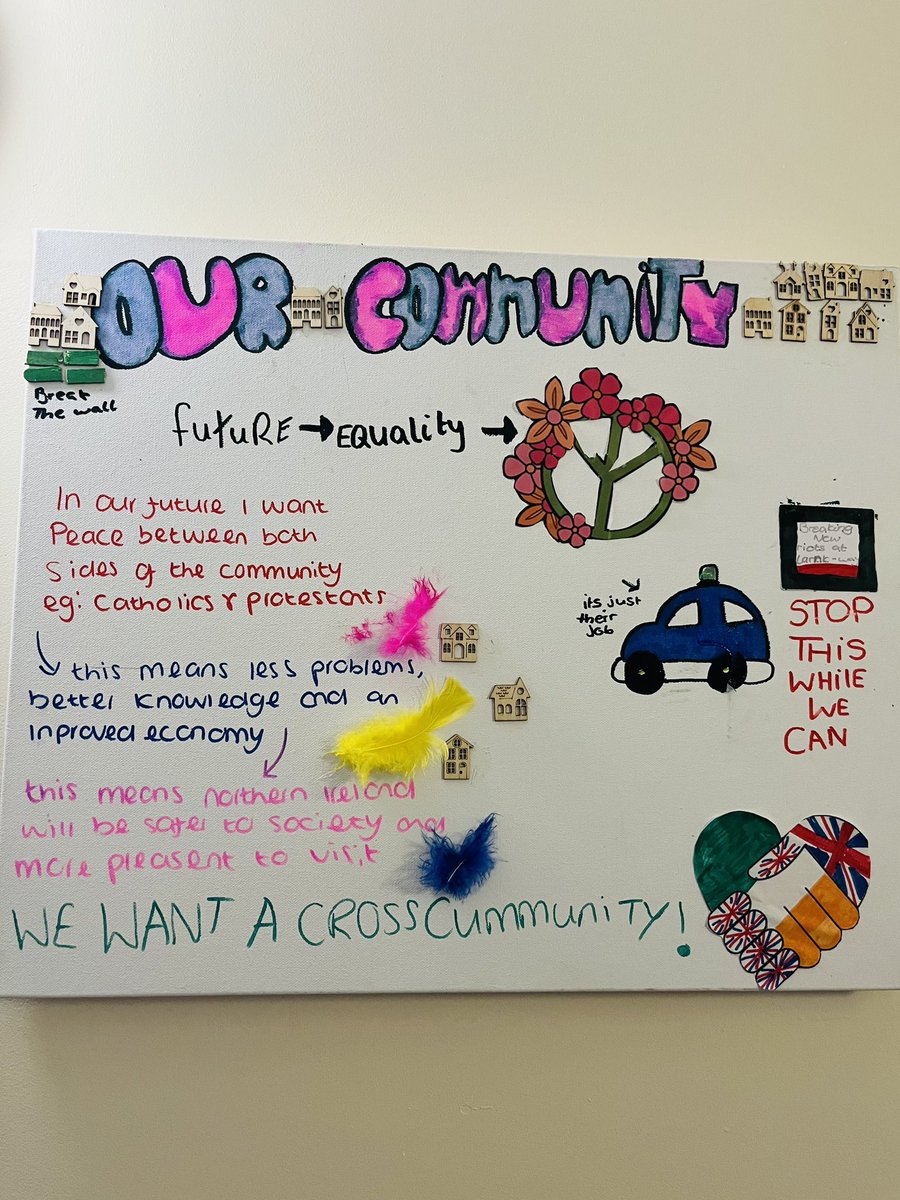 OUR COMMUNITY
Break
The wall
fuTuRE → EQUALITY →
In our future I want
Peace between both
Sides of the community
eg: Catholics & protestants
this means less problems,
better knowledge and an
inproved economy
this means northern Ireland
will be safer to society and
more pleasent to visit
WE WANT A CROSSCUMMUNITY!
its just
their
JOB
Breaking
New
riots at
STOP
THIS
WHILE
WE
CAN